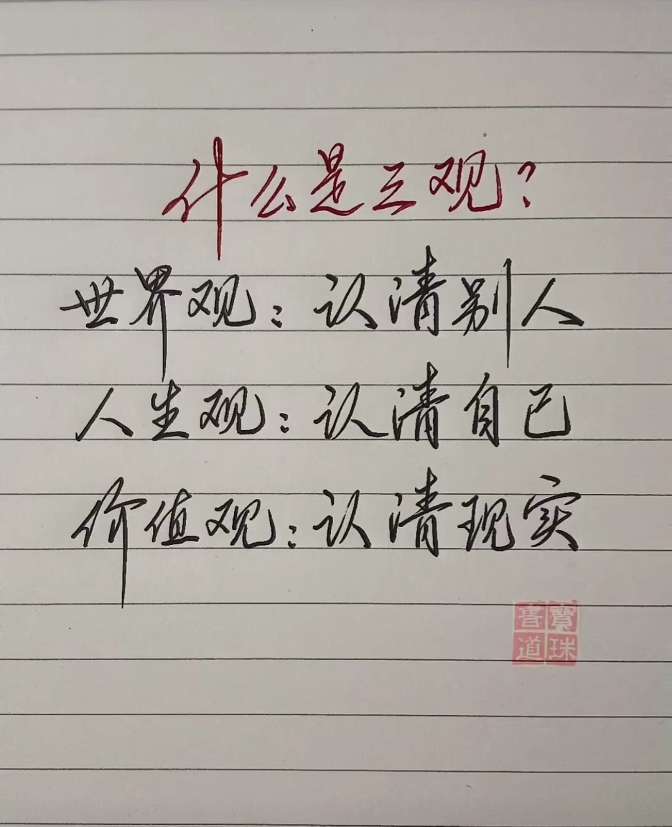 什么是三观?
世界观:认清别人
人生观:认清自己
价值观:认清现实
寶珠書道